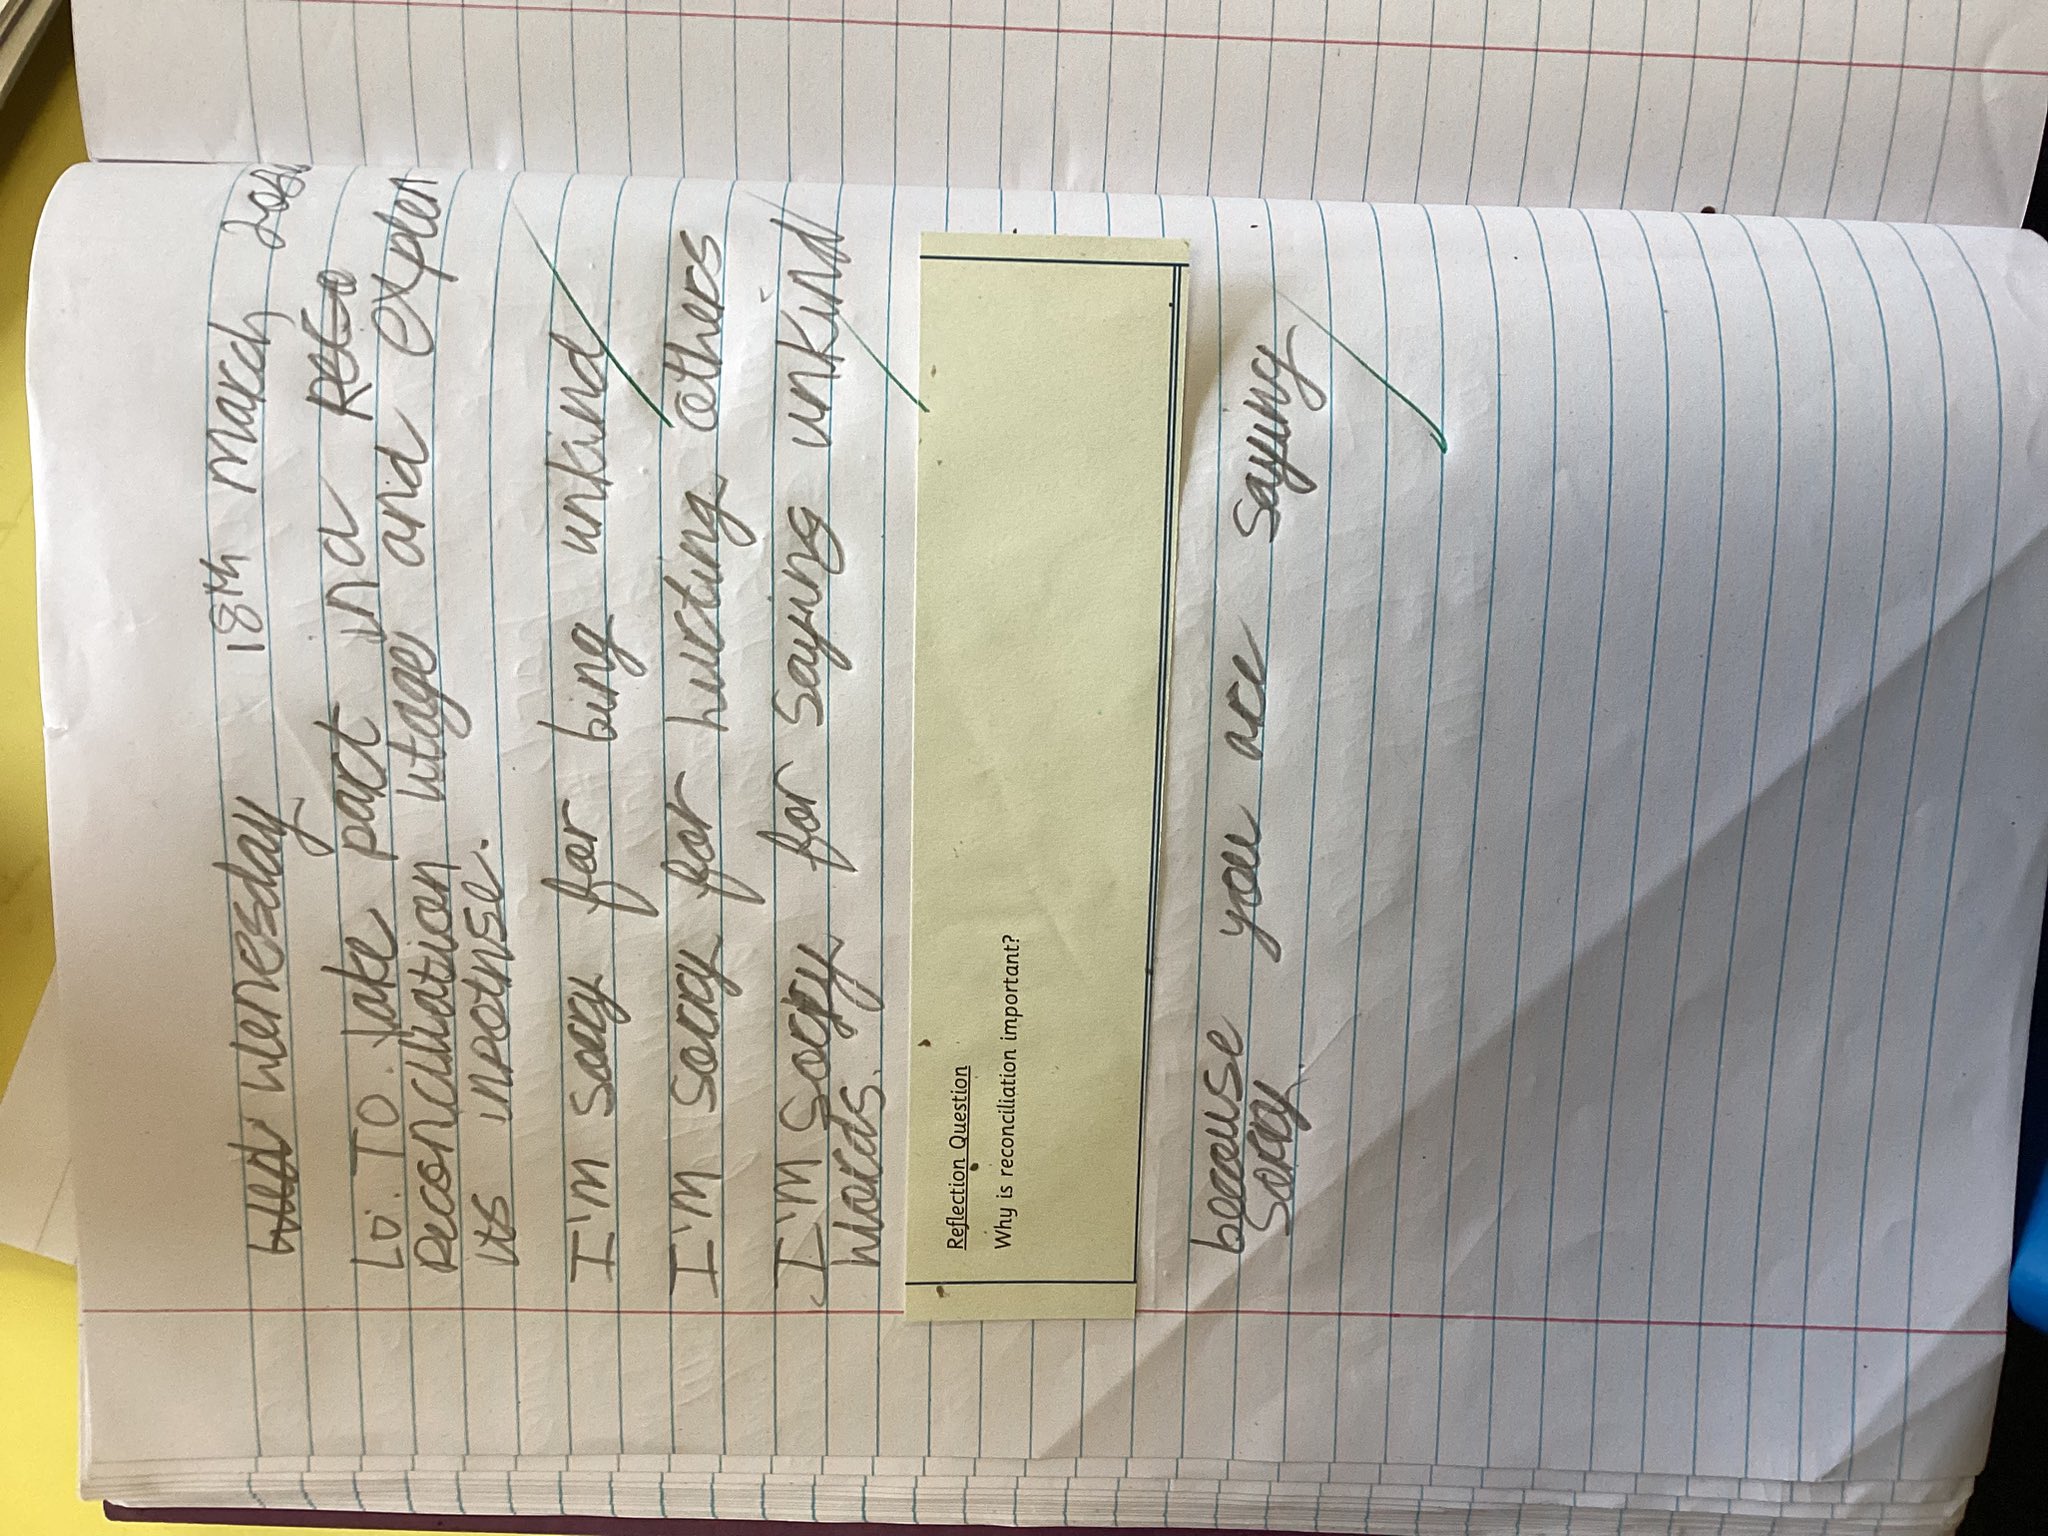 wenesday 18th march
Lo. To take part in a
reconciliation litage and explen
its inpotnse.
I'm sorry for bing unkind
I'm sorry for hurting others
I'm sorry for saying unkind
words.
Reflection Question
Why is reconciliation important?
because you are saying
sorry.